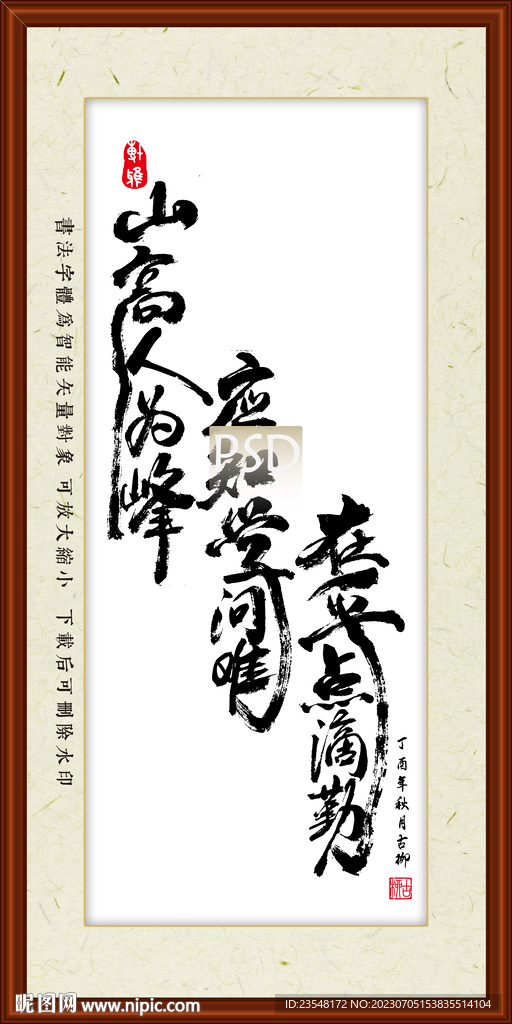 軒雅
山高人为峰
应知学问难
在乎点滴勤
丁酉年秋月古柳
書法字體為智能矢量對象 可放大縮小 下載后可刪除水印
PSD
昵图网 www.nipic.com
ID:23548172 NO:20230705153835514104